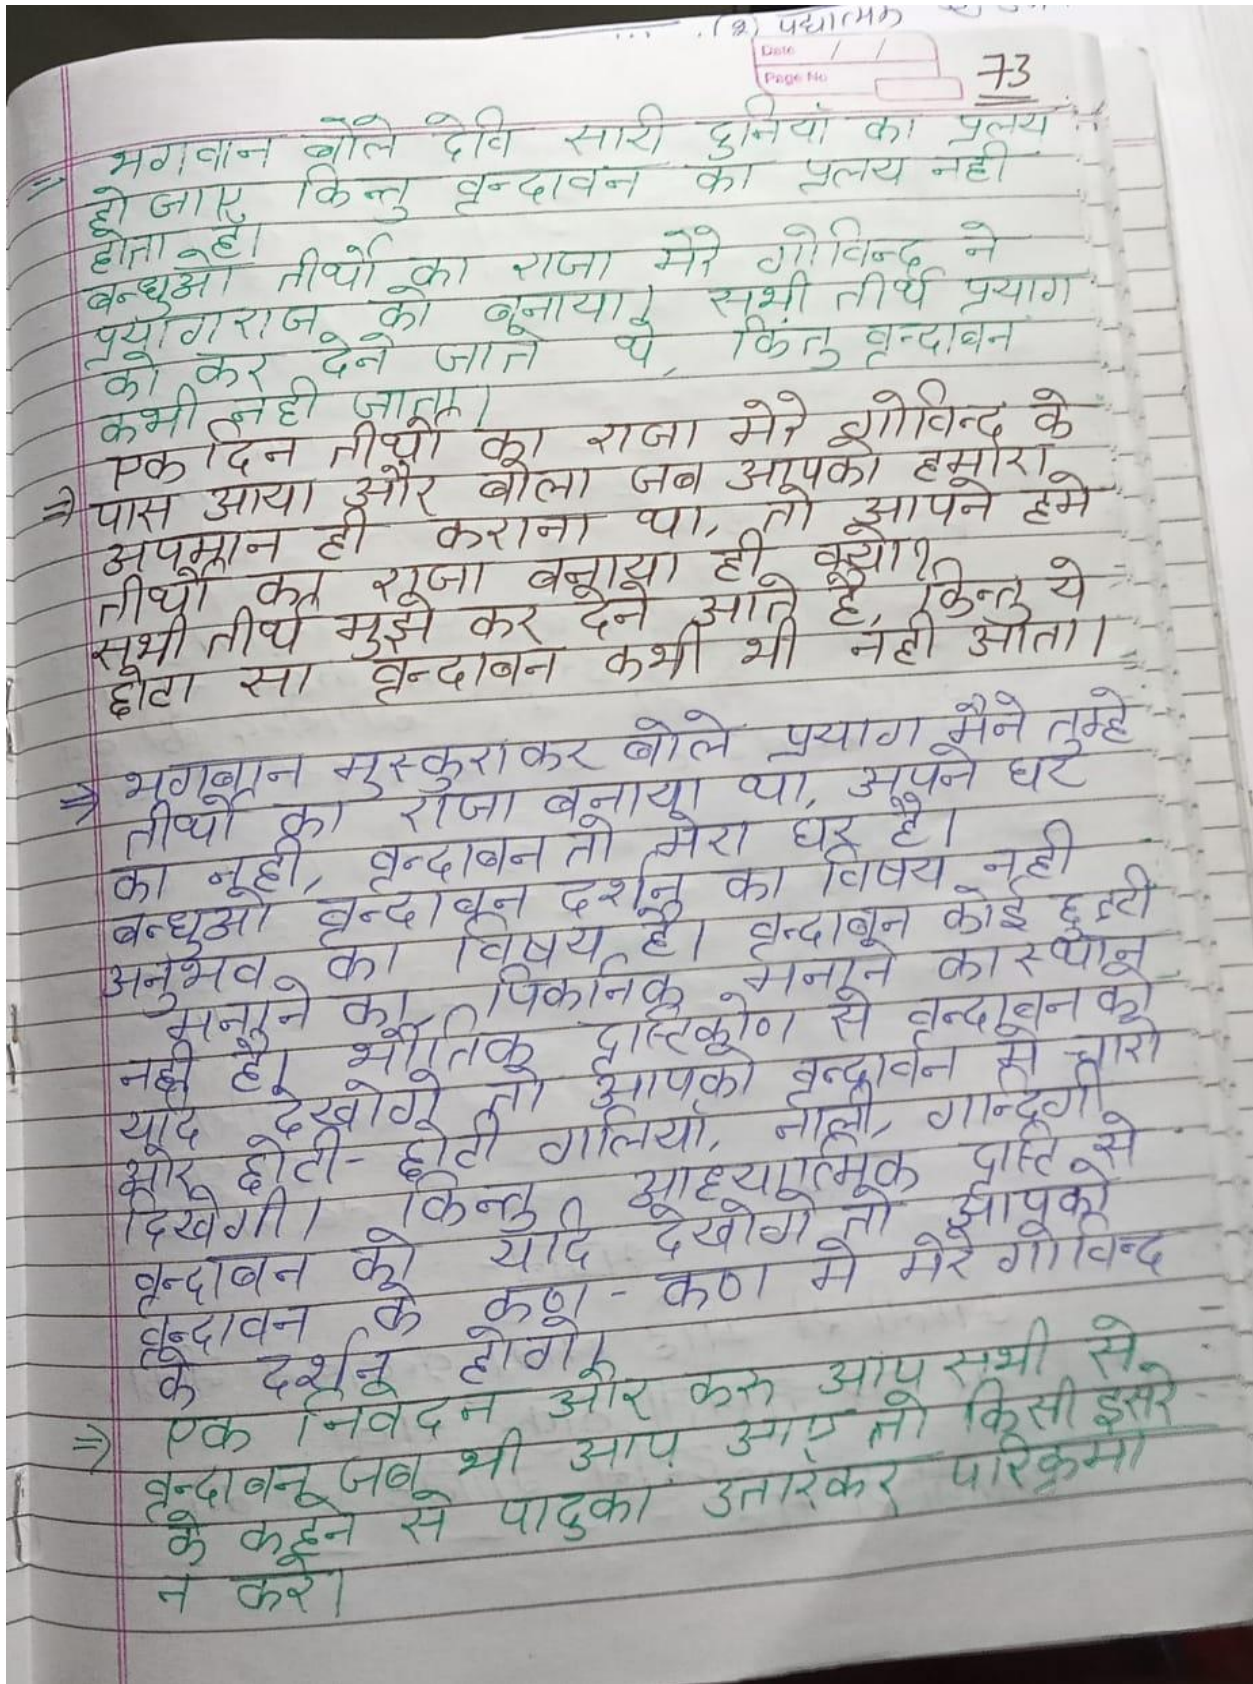 (2) पद्यात्मक
Date / /
Page No
73
⇒ भगवान बोले देवि सारी दुनियाँ का प्रलय
हो जाए किन्तु वृन्दावन का प्रलय नही
होता है।
बन्धुओ तीर्थो का राजा मेरे गोविन्द ने
प्रयागराज को बनाया। सभी तीर्थ प्रयाग
को कर देने जाते थे, किंतु वृन्दावन
कभी नही जाता।
एक दिन तीर्थो का राजा मेरे गोविन्द के
⇒ पास आया और बोला जब आपको हमारा
अपमान ही कराना था, तो आपने हमे
तीर्थो का राजा बनाया ही क्यो?
सभी तीर्थ मुझे कर देने आते है, किन्तु ये
छोटा सा वृन्दाबन कभी भी नही आता।
⇒ भगबान मुस्कुराकर बोले प्रयाग मैने तुम्हे
तीर्थो का राजा बनाया था, अपने घर
का नही, वृन्दाबन तो मेरा घर है।
बन्धुओ वृन्दावन दर्शन का विषय नही
अनुभव का विषय है। वृन्दाबन कोई छुट्टी
मनाने का, पिकनिक मनाने का स्थान
नही है। भौतिक दृष्टिकोण से वन्दाबन को
यदि देखोगे तो आपको वृन्दावन मे चारो
ओर छोटी-छोटी गलियाँ, नाली, गन्दिगी
दिखेगी। किन्तु आध्यात्मिक दृष्टि से
वृन्दाबन को यदि देखोगे तो आपको
वृन्दावन के कण-कण मे मेरे गोविन्द
के दर्शन होगे।
⇒ एक निवेदन और करु आप सभी से
वृन्दाबन जब भी आप आए तो किसी दूसरे
के कहने से पादुका उतारकर परिक्रमा
न करे।